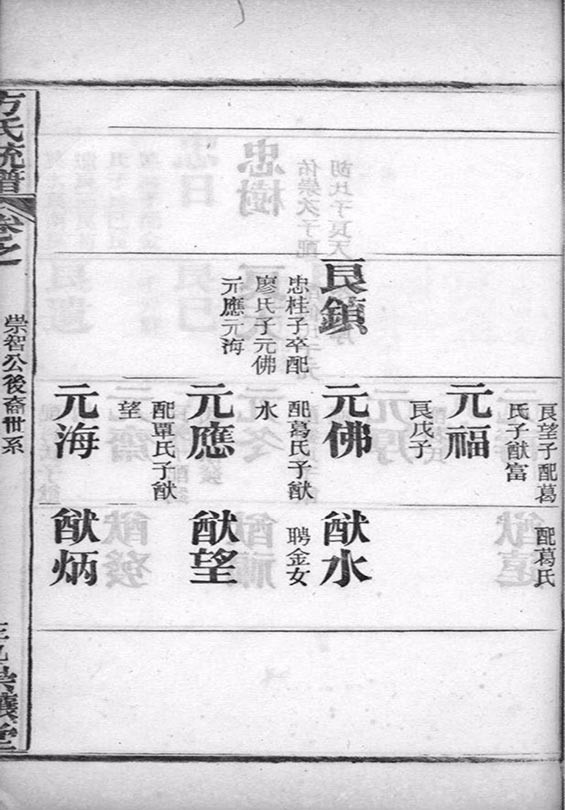 良鎮
忠桂子卒配
廖氏子元佛
元應元海
良望子配葛
氏子猷富
元福
良戊子
元佛
配葛氏子猷
水
元應
配覃氏子猷
望
元海
配葛氏
猷水
聘金女
猷望
猷炳
方氏統譜
卷之
崇智公後裔世系